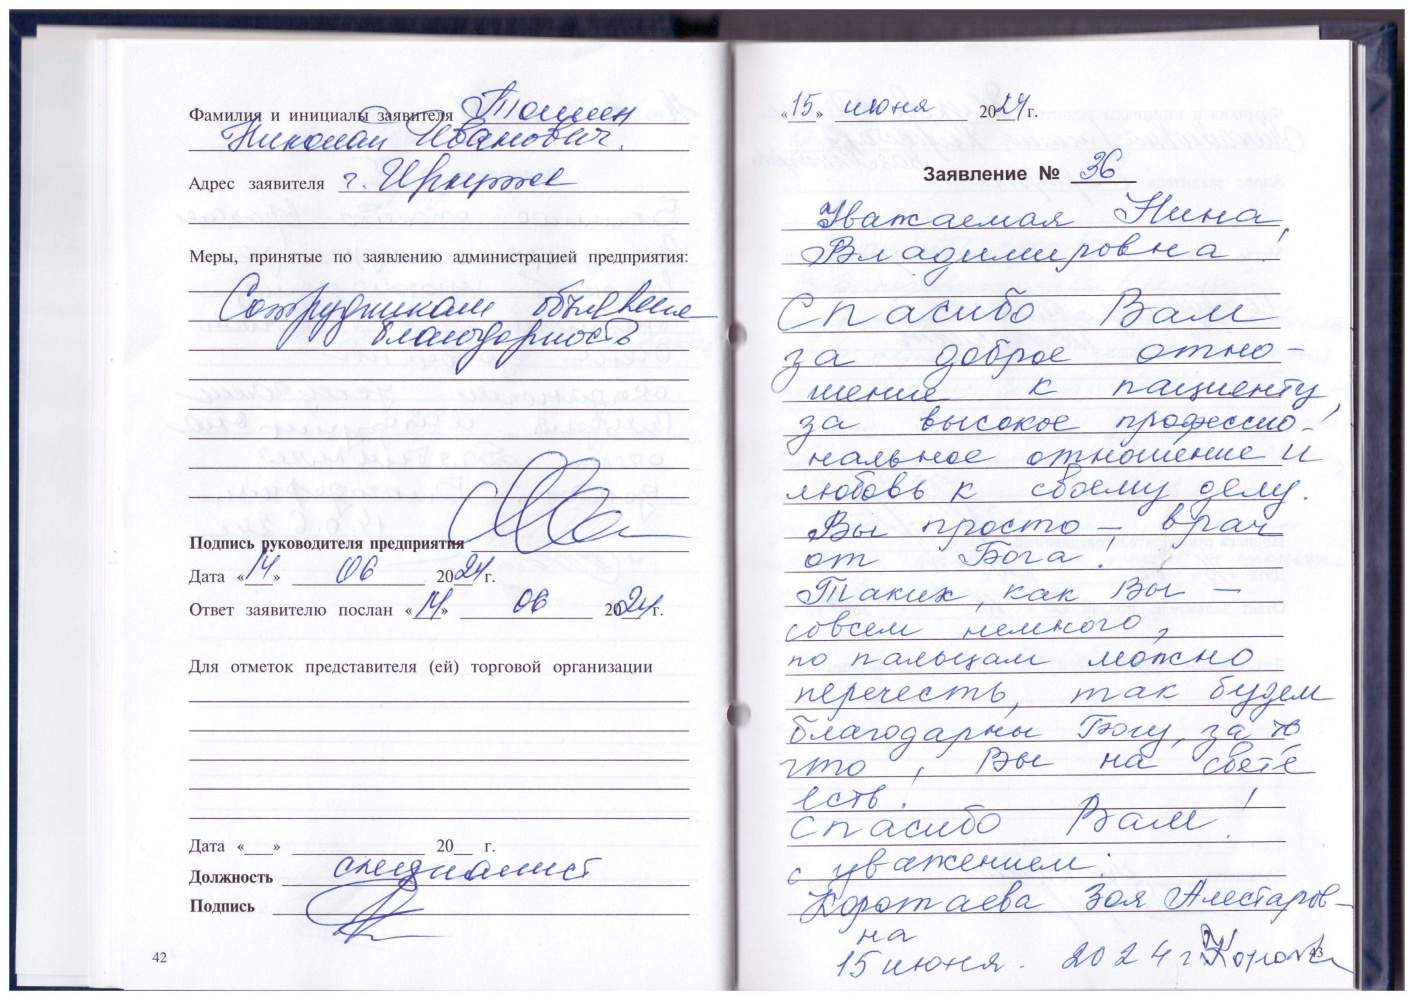 Фамилия и инициалы заявителя Тошин
Николай Иванович.
Адрес заявителя г.
Меры, принятые по заявлению администрацией предприятия:
Сотрудникам объявлена
благодарность
Подпись руководителя предприятия
Дата «14» 06 2024 г.
Ответ заявителю послан «14» 06 2024 г.
Для отметок представителя (ей) торговой организации
Дата «___» 20__ г.
Должность специалист
Подпись
42
«15» июня 2024 г.
Заявление № 36
Уважаемая Нина,
Владимировна!
Спасибо Вам
за доброе отно-
шение к пациенту,
за высокое профессио-
нальное отношение и
любовь к своему делу.
Вы просто – врач
от Бога!
Таких, как Вы –
совсем немного,
по пальцам можно
перечесть, так будем
благодарны Богу, за то
что, Вы на свете
есть!
Спасибо Вам!
с уважением:
Коротаева Зоя Алестаров-
на
15 июня. 2024 г.
43